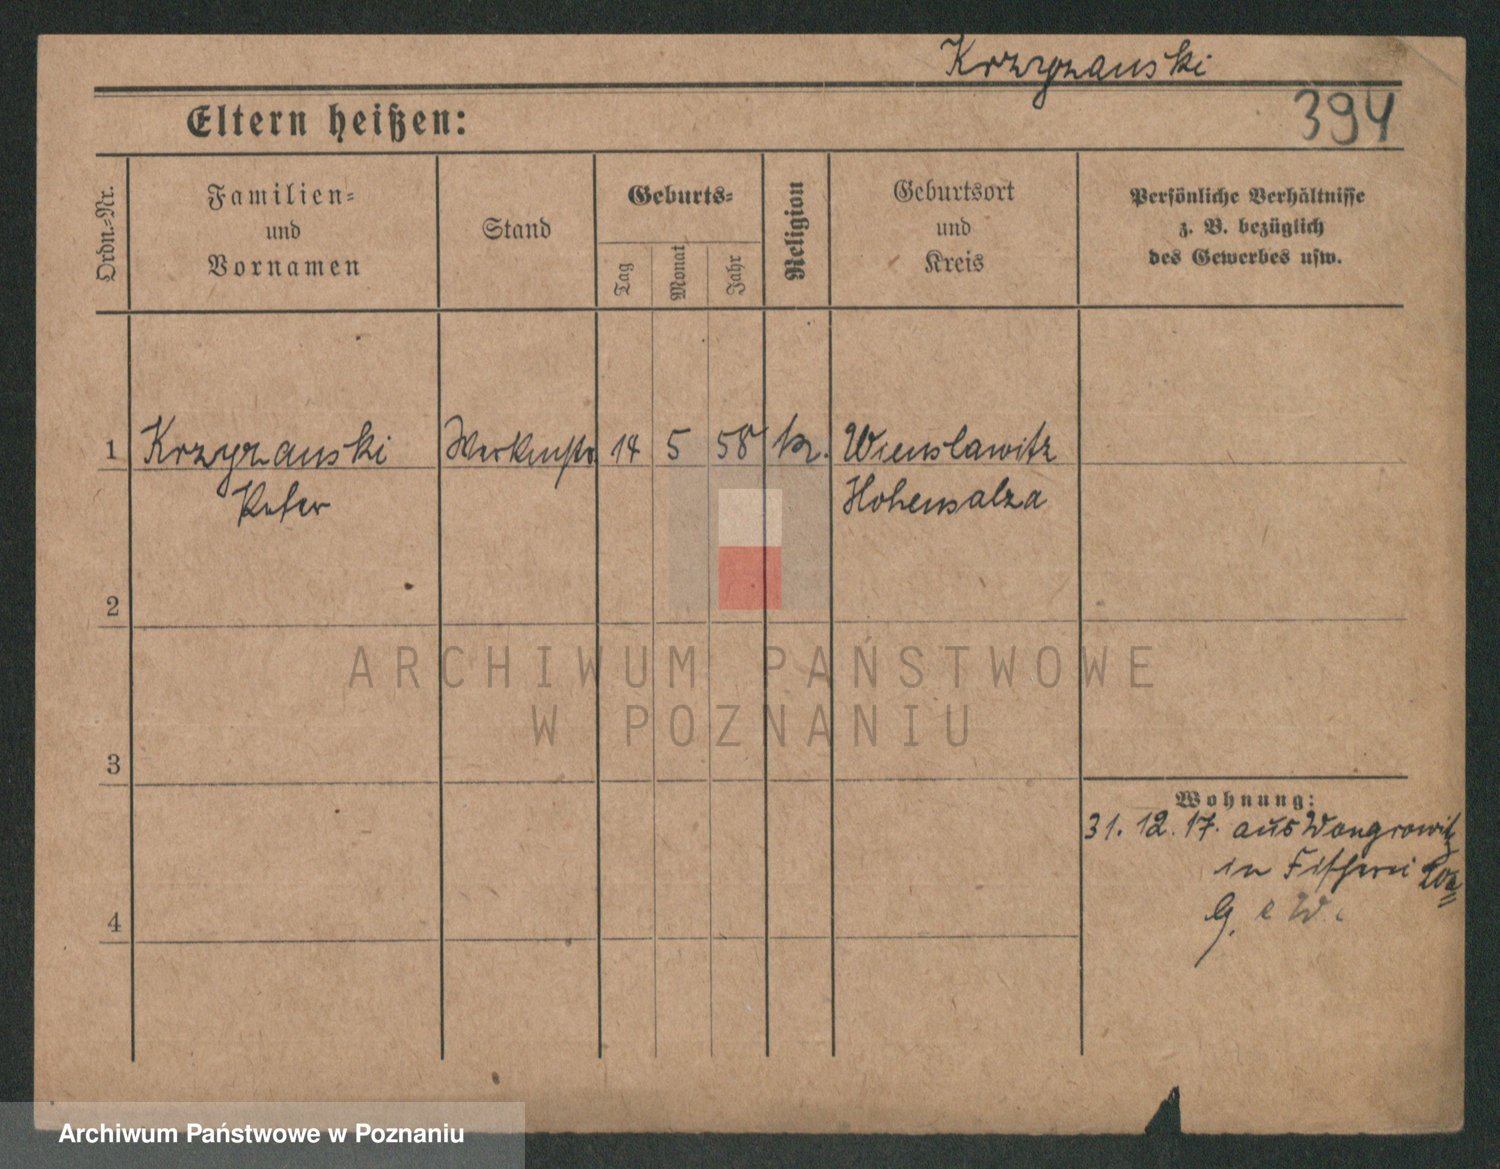 Krzyzanski
394
Eltern heißen:
Ordn.-Nr.
Familien-
und
Vornamen
Stand
Geburts-
Tag
Monat
Jahr
Religion
Geburtsort
und
Kreis
Persönliche Verhältnisse
z. B. bezüglich
des Gewerbes usw.
1 Krzyzanski 14 5 58 Wienslawitz
Peter Hohensalza
2
3
4
Wohnung:
31. 12. 17. aus Wongrowitz
in Fischerei
ARCHIWUM PAŃSTWOWE
W POZNANIU
Archiwum Państwowe w Poznaniu